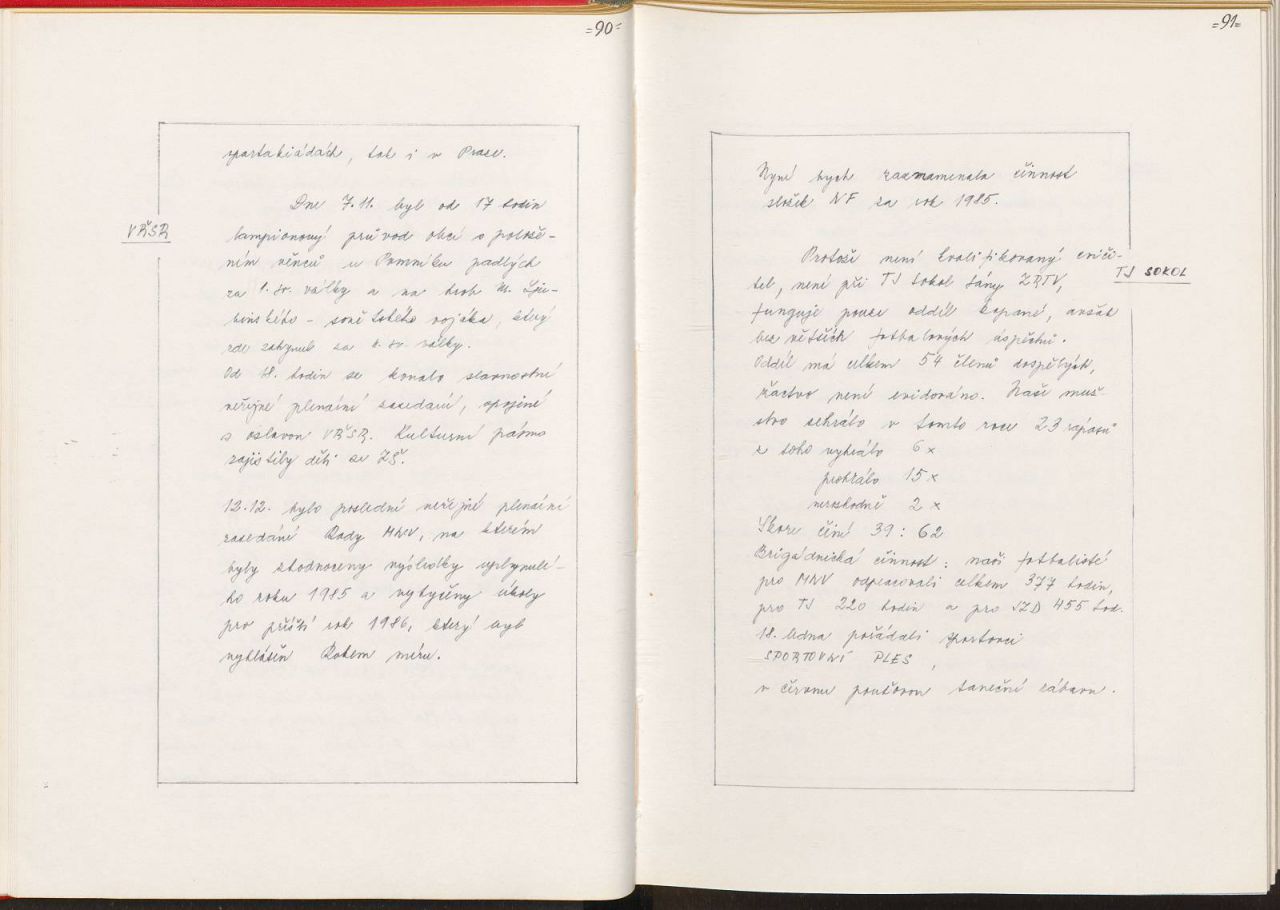 =90=
spartakiádách, tak i v Praze.
VŘSR
Dne 7.11. byl od 17 hodin
lampionový průvod obcí s polože-
ním věnců u Pomníku padlých
za 1. sv. války a na hrob M. Lju-
binského - sovětského vojáka, který
zde zahynul za 2. sv. války.
Od 18. hodin se konalo slavnostní
veřejné plenární zasedání, spojené
s oslavou VŘSR. Kulturní pásmo
zajistily děti ze ZŠ.
12.12. bylo poslední veřejné plenární
zasedání Rady MNV, na kterém
byly zhodnoceny výsledky uplynulé-
ho roku 1985 a vytyčeny úkoly
pro příští rok 1986, který byl
vyhlášen Rokem míru.
=91=
Nyní bych zaznamenala činnost
složek NF za rok 1985.
TJ SOKOL
Protože není kvalifikovaný cviči-
tel, není při TJ Sokol Lány ZRTV,
funguje pouze oddíl kopané, avšak
bez větších fotbalových úspěchů.
Oddíl má celkem 54 členů dospělých,
žactvo není evidováno. Naše muž-
stvo sehrálo v tomto roce 23 zápasů
z toho vyhrálo 6 x
prohrálo 15 x
nerozhodně 2 x
Skore činí 39 : 62
Brigádnická činnost : naši fotbalisté
pro MNV odpracovali celkem 377 hodin,
pro TJ 220 hodin a pro JZD 455 hod.
18. ledna pořádali sportovci
SPORTOVNÍ PLES,
v červnu pouťovou taneční zábavu.